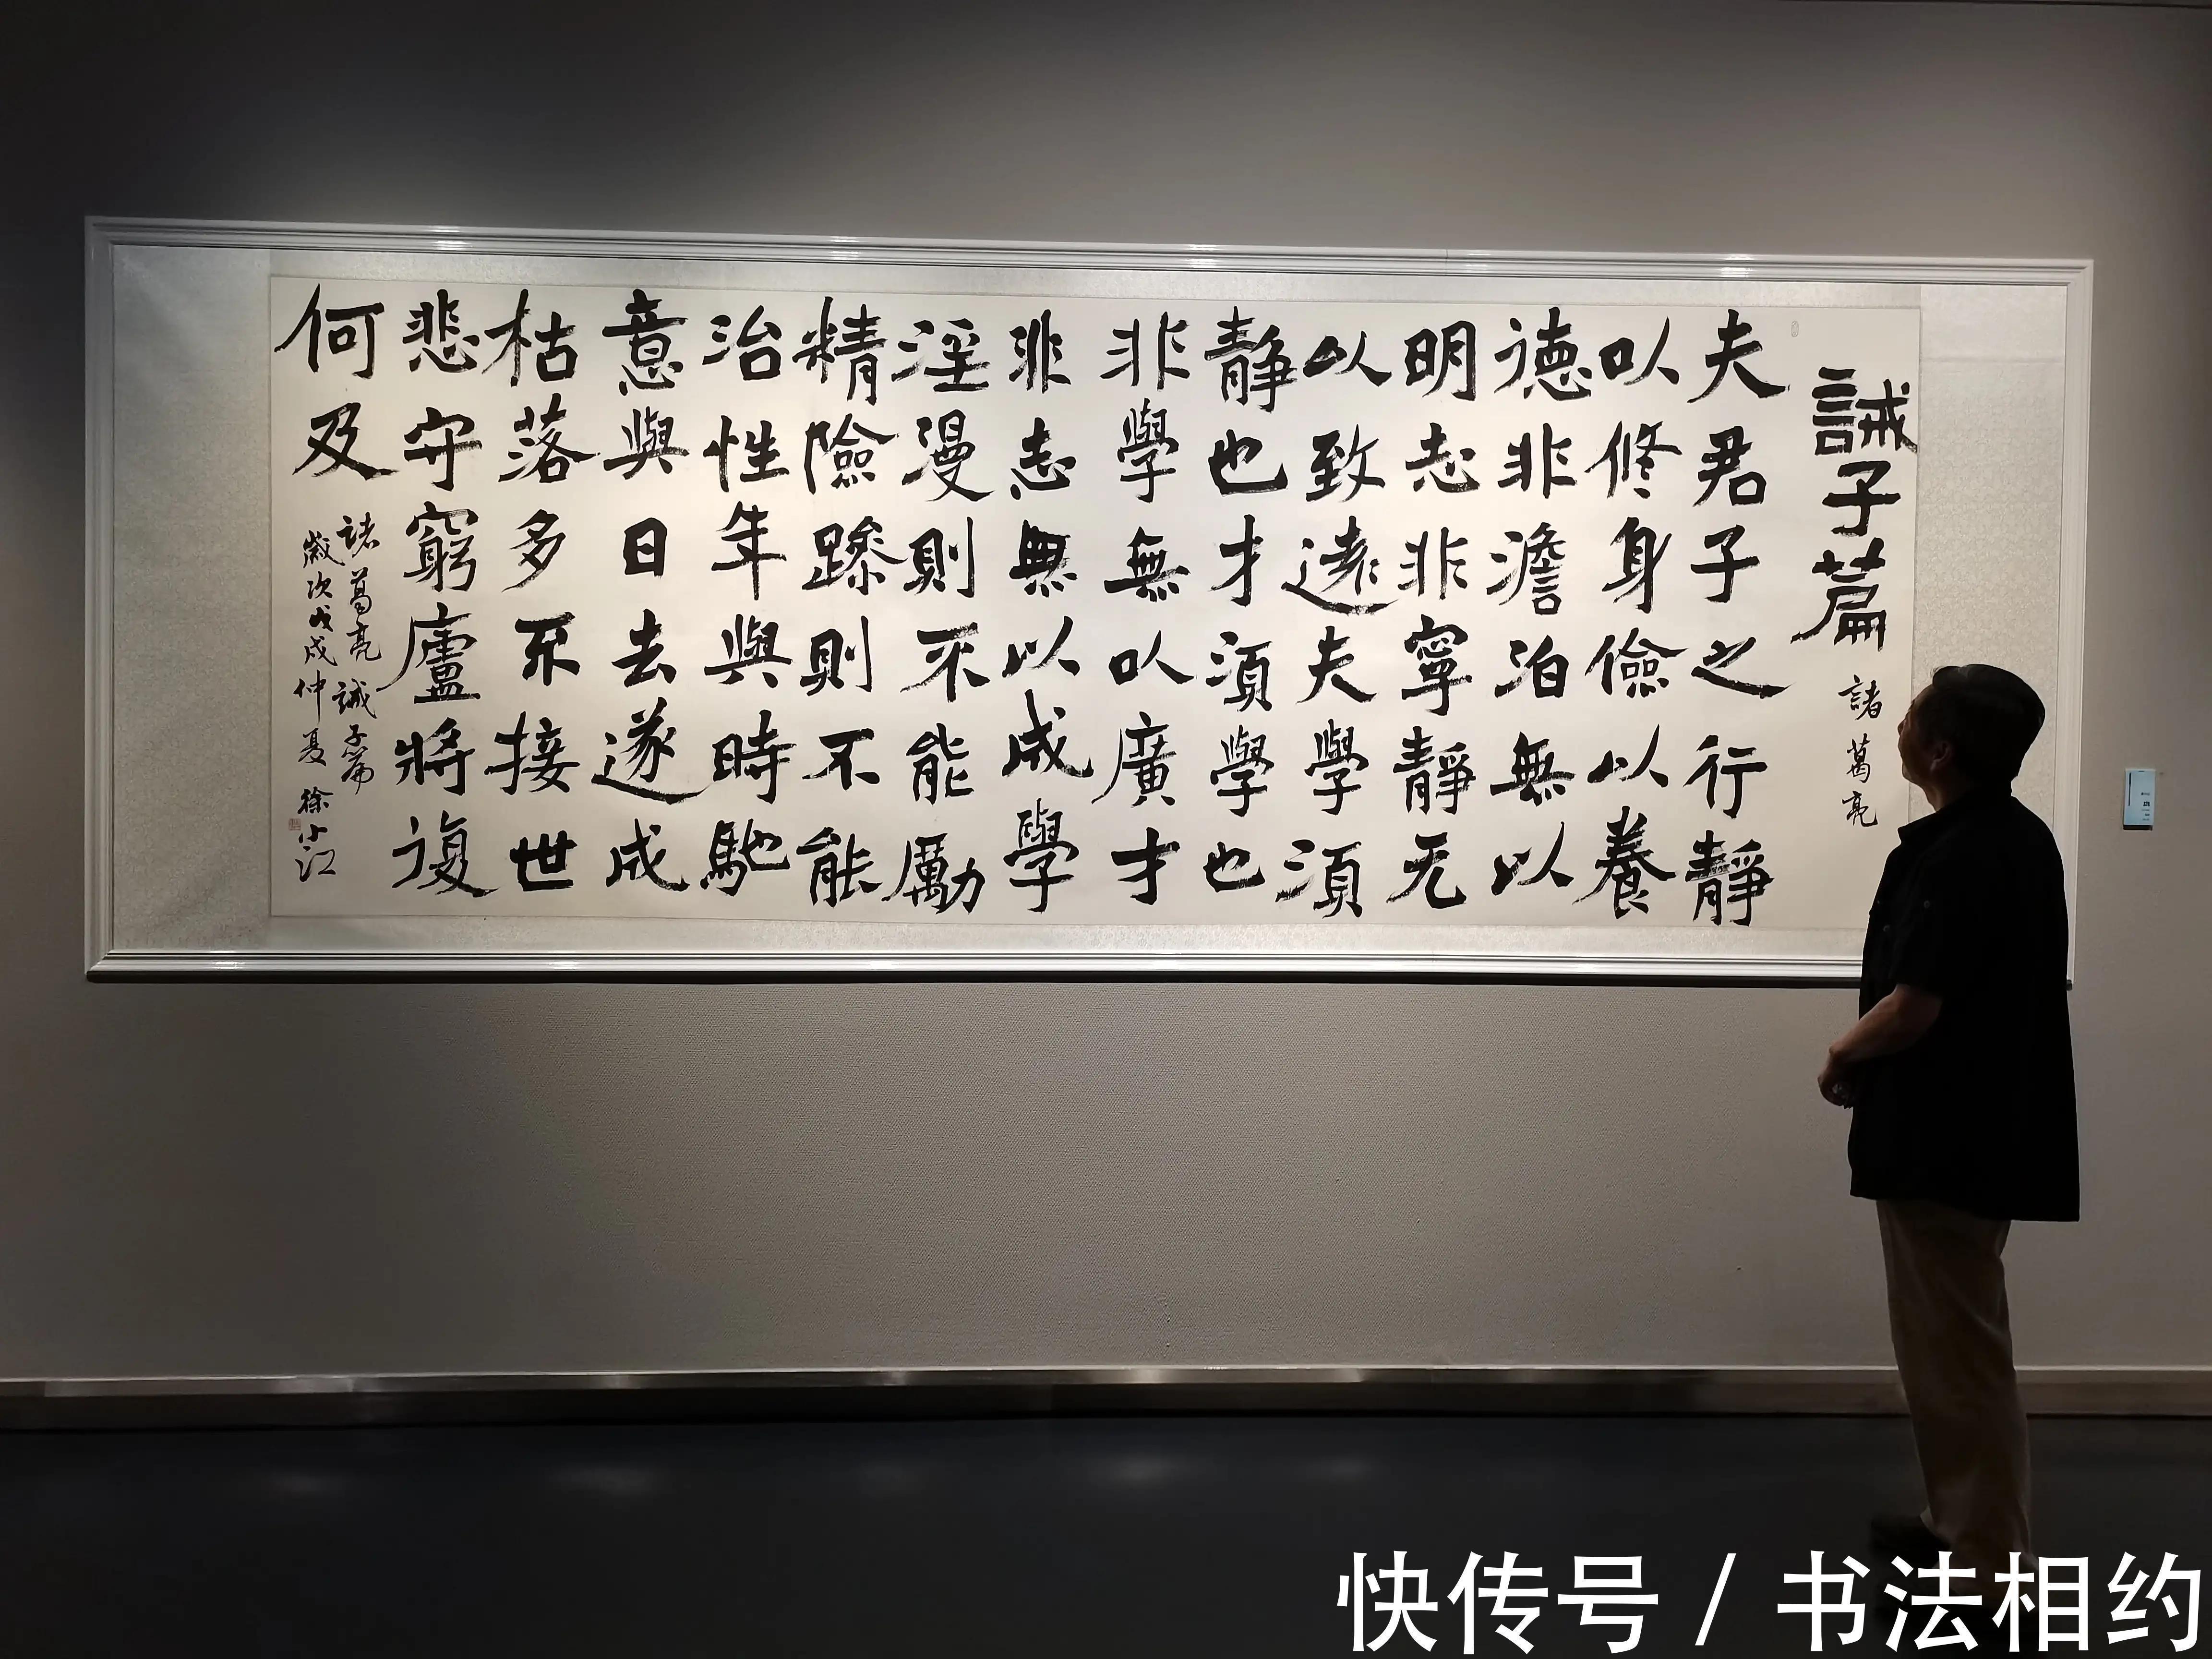 誡子篇 諸葛亮
夫君子之行靜
以修身儉以養
德非澹泊無以
明志非寧靜无
以致遠夫學須
靜也才須學也
非學無以廣才
非志無以成學
淫漫則不能勵
精險躁則不能
治性年與時馳
意與日去遂成
枯落多不接世
悲守窮廬將復
何及
諸葛亮誡子篇
歲次戊戌仲夏 徐小江
快传号 / 书法相约